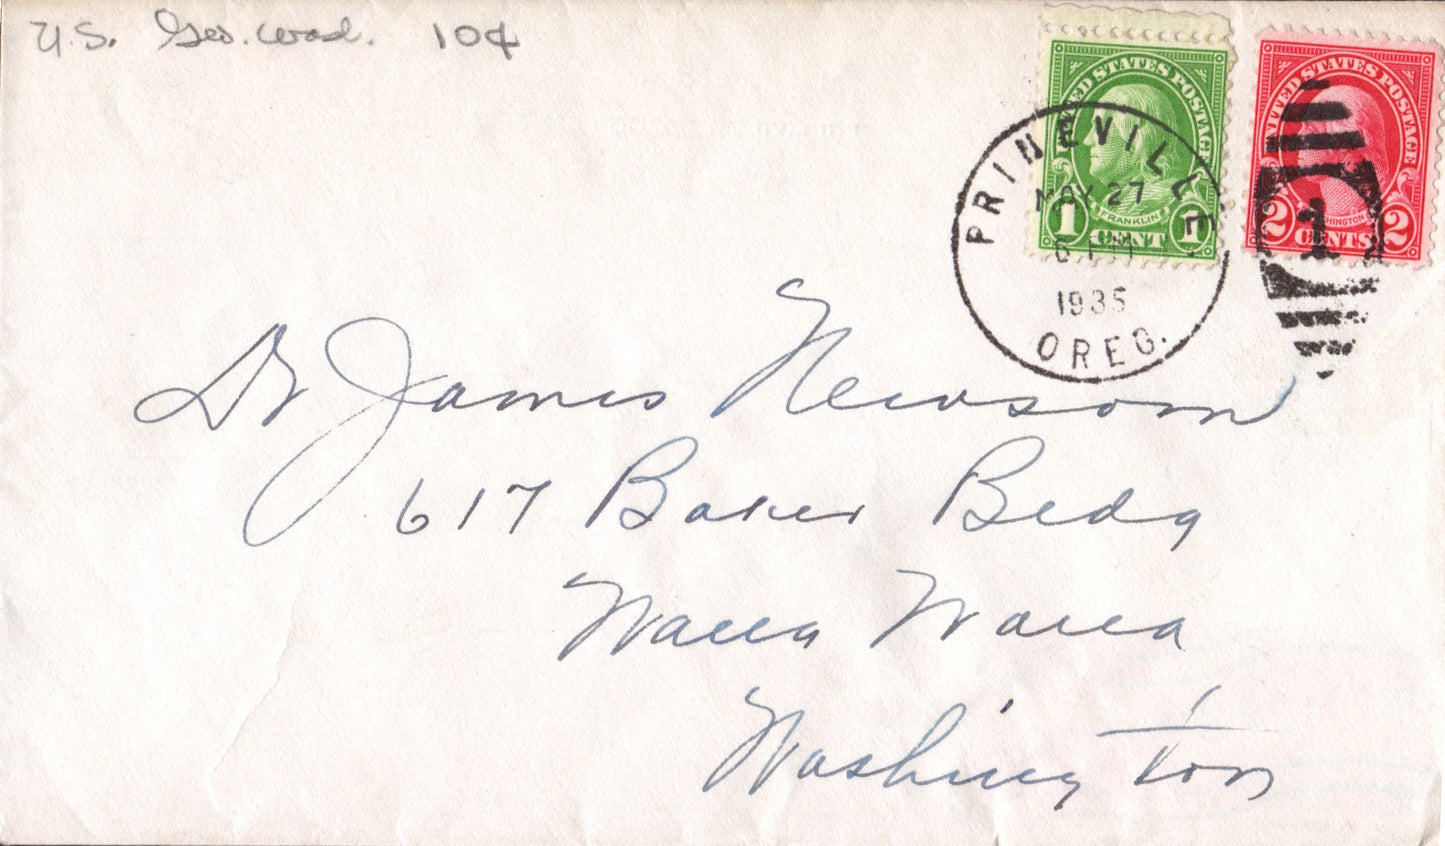 U.S. Geo. Wash. 10¢
UNITED STATES POSTAGE
FRANKLIN
1 CENT 1
UNITED STATES POSTAGE
WASHINGTON
2 CENTS 2
PRINEVILLE.
MAY 27
6 PM
1935
OREG.
1
Dr James Newsom
617 Baker Bldg
Walla Walla
Washington